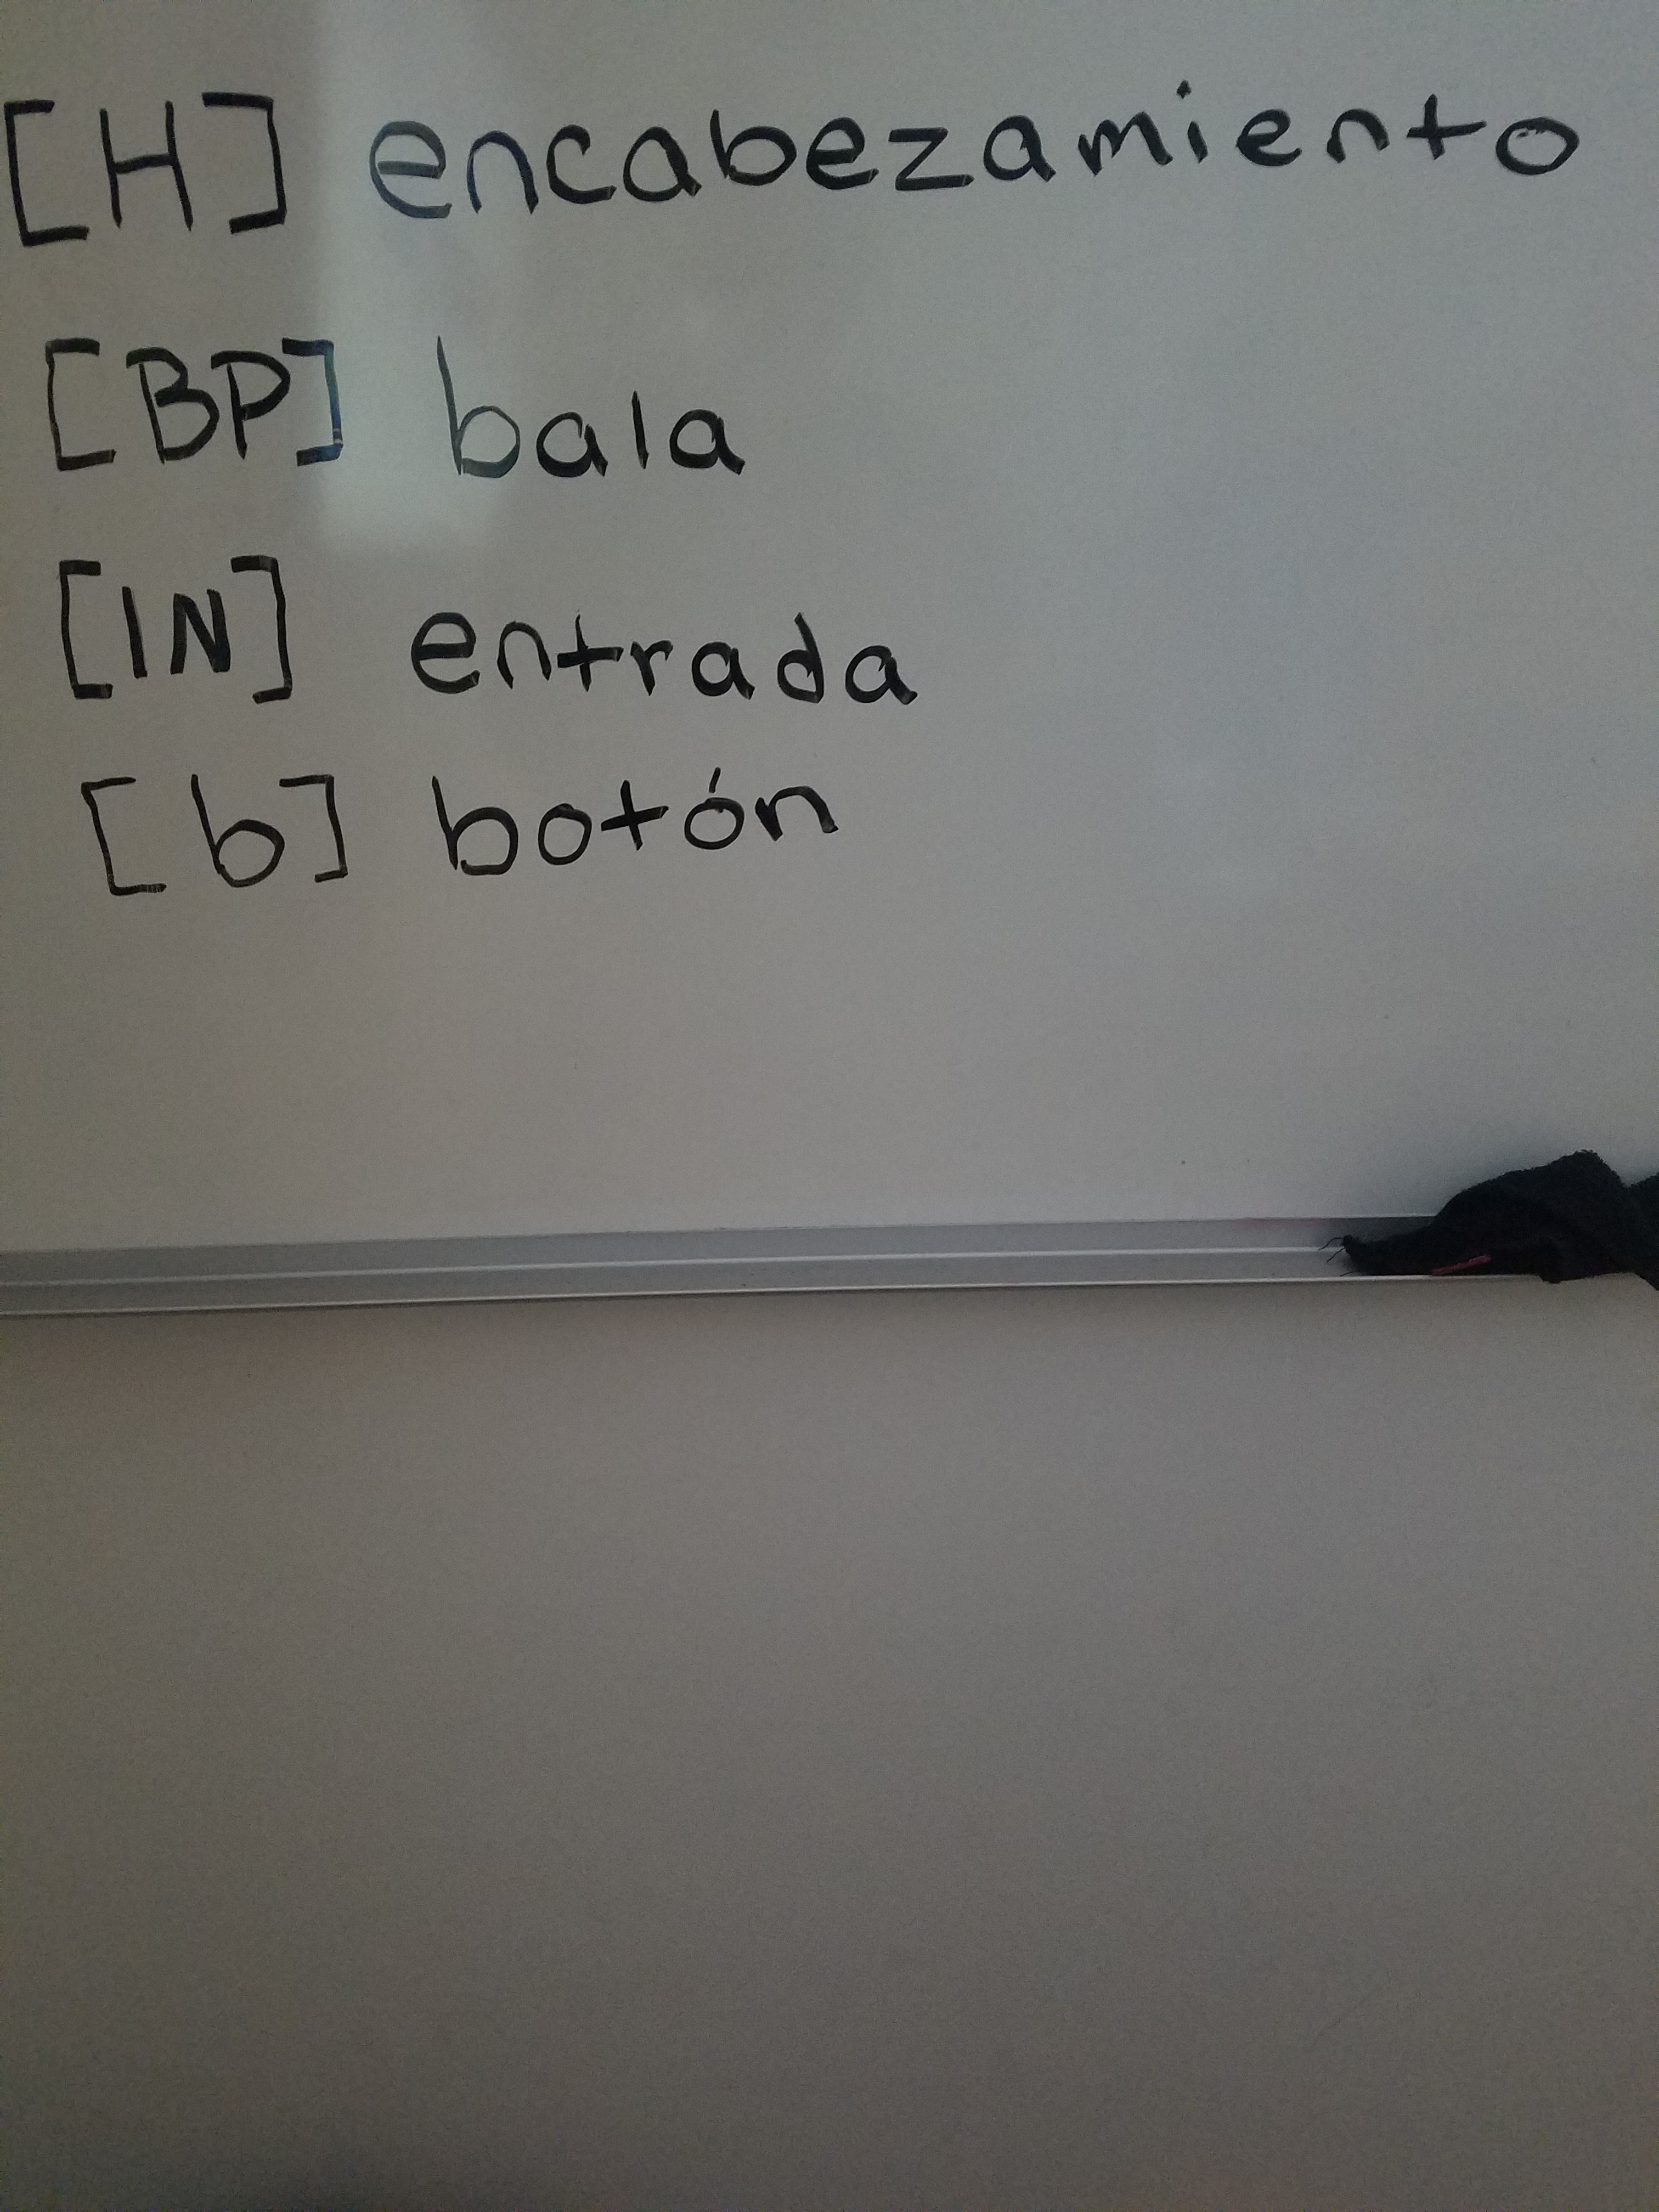 [H] encabezamiento
[BP] bala
[IN] entrada
[b] botón